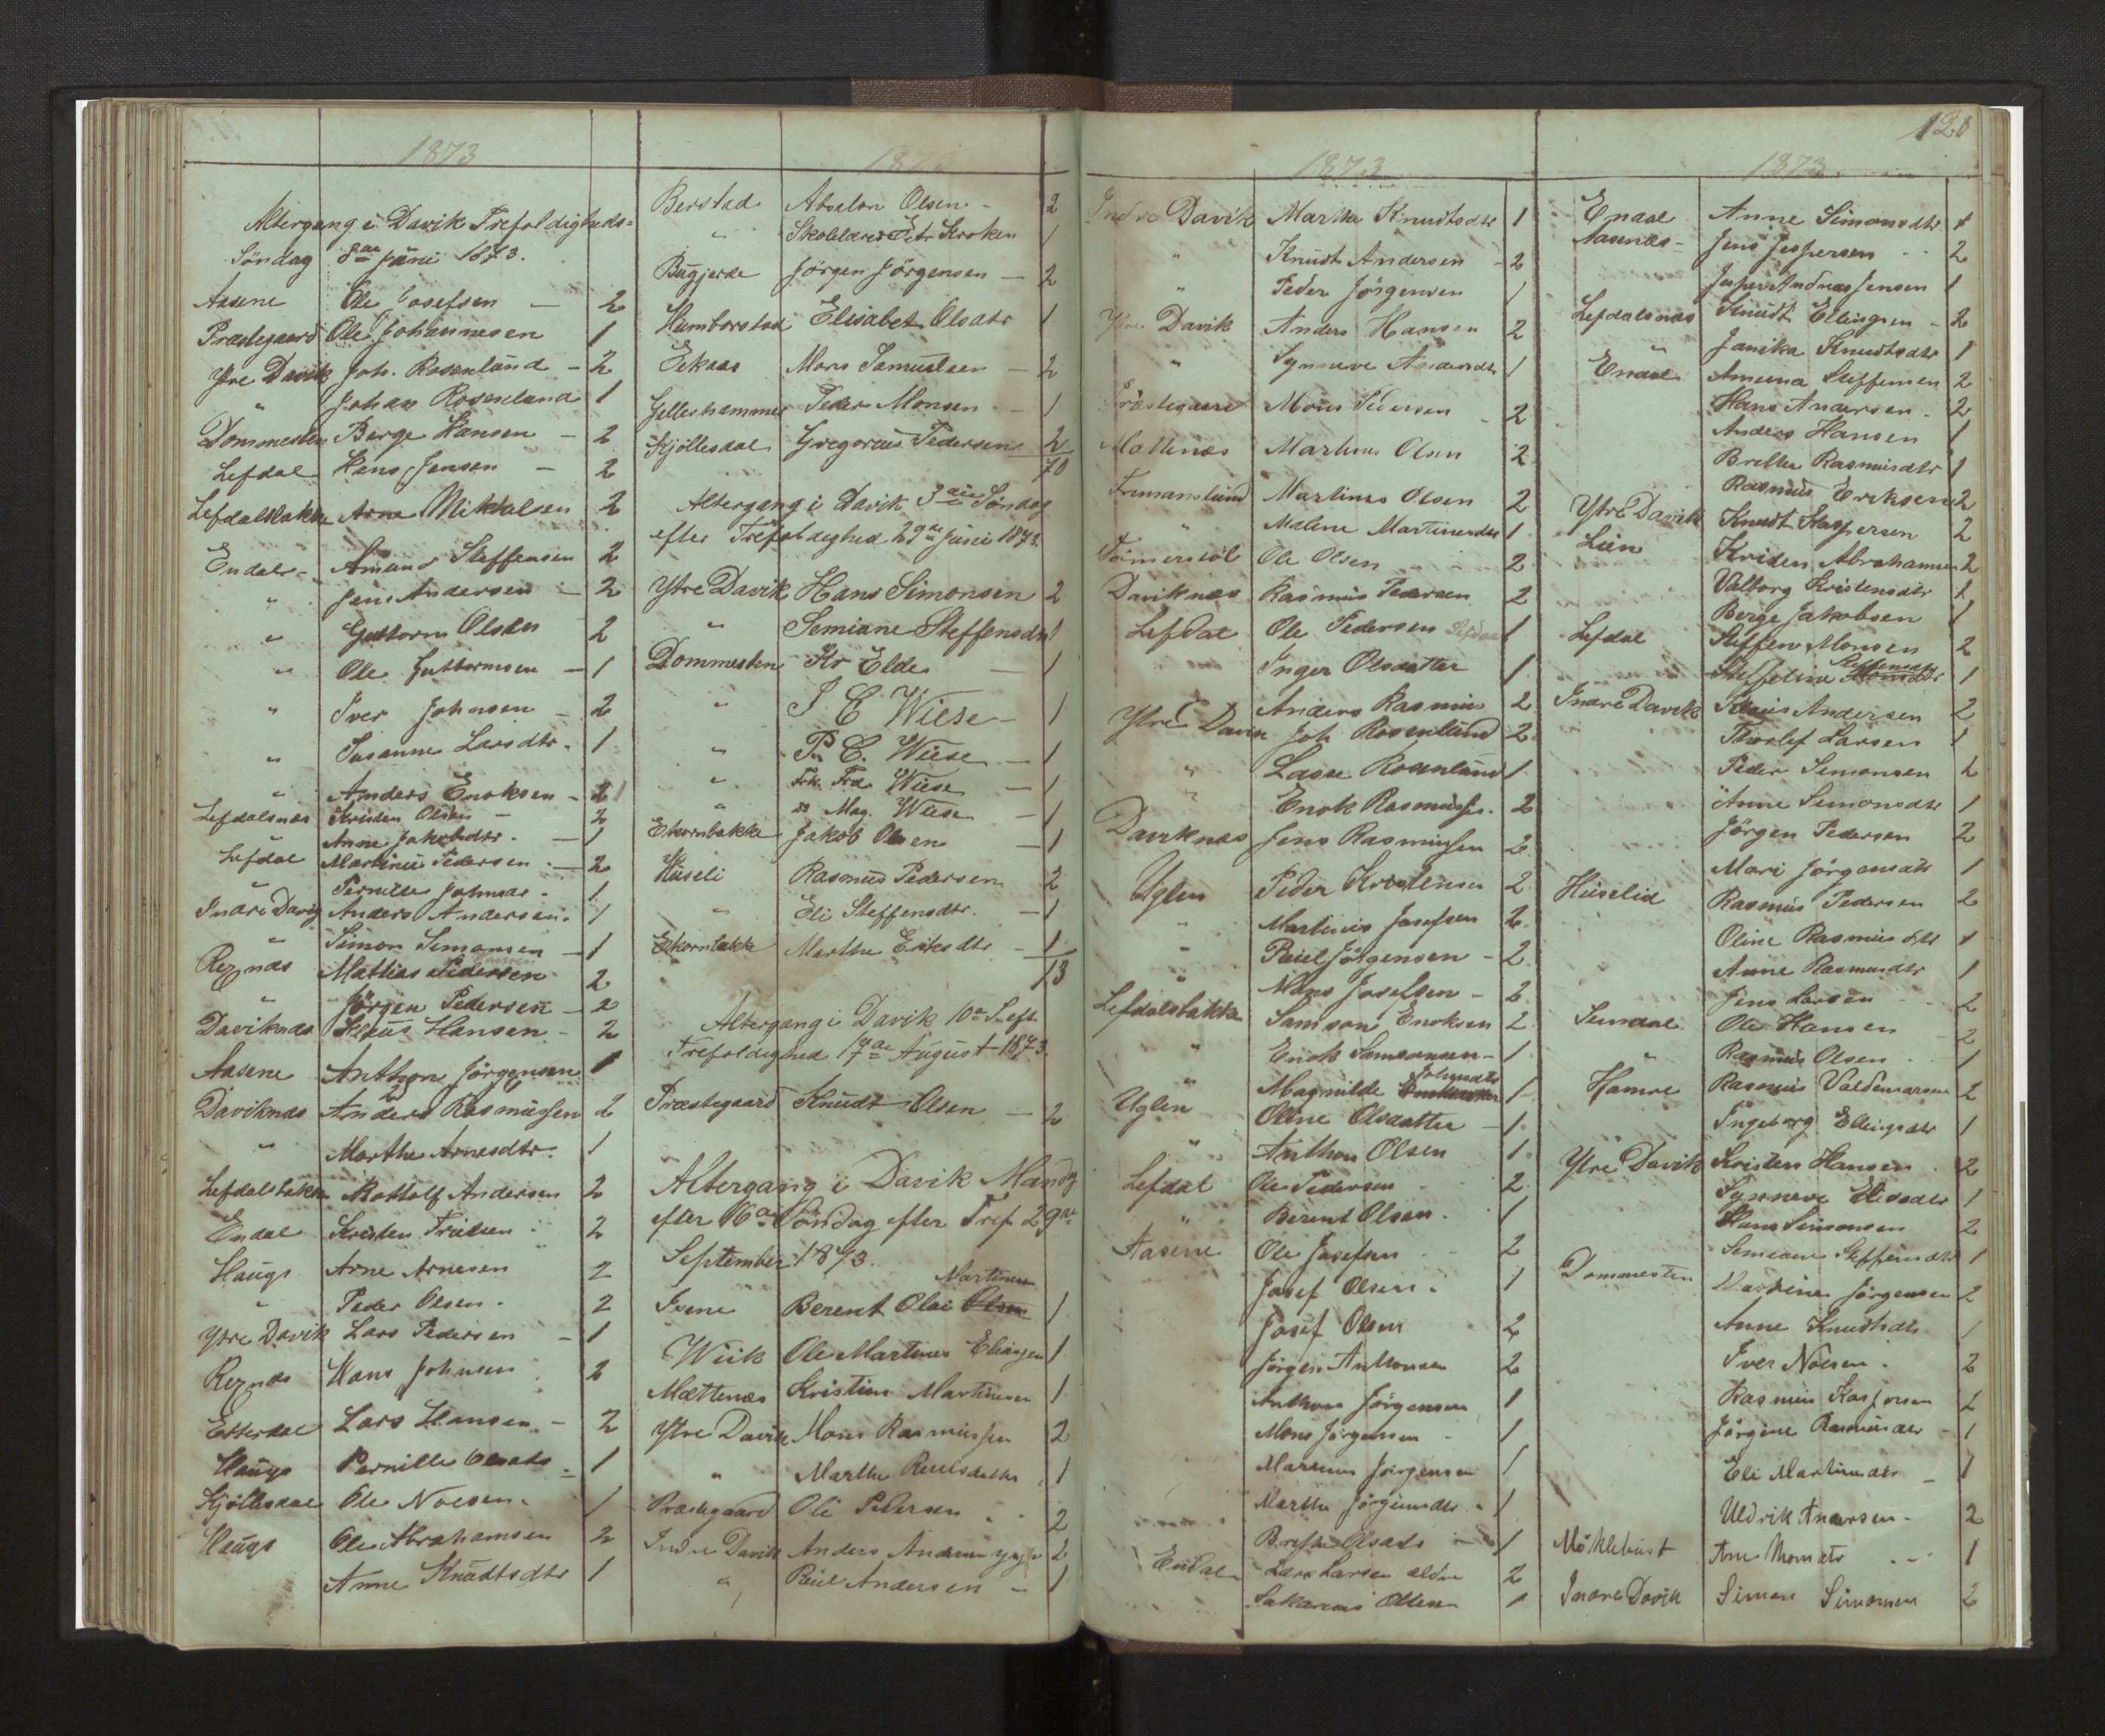 1873
Altergang i Davik Trefoldigheds-
Söndag 8de Juni 1873.
Aasene Ole Josefsen – 2
Præstegaard Ole Johannesen 1
Ytre Davik Joh. Rosenlund – 2
" Johan Rosenlund 1
Dommesten Berge Hansen – 2
Lefdal Hans Jensen – 2
Lefdalsbakke Arne Mikkalsen 2
Endal Amund Steffensen 2
" Jens Andersen – 2
" Guttorm Olsen 2
" Ole Guttormsen – 1
" Iver Johnsen – 2
" Susanne Larsdtr. 1
" Anders Enoksen – 1
Lefdalsnæs Kristen Olsen – 2
" Anne Jakobsdtr. – 1
Lefdal Martinus Pedersen – 2
" Pernille Johnsdr. 1
Indre Davig Anders Andersen. 1
" Simon Simonsen – 1
Regnæs Mathias Pedersen 2
" Jörgen Pedersen – 2
Daviknæs Klaus Hansen – 2
Aasene Anthon Jörgensen 1
Daviknæs Anders Rasmussen 2
" Marthe Arnesdtr. 1
Lefdalsbakke Mattolf Andersen 2
Endal Kristen Truelsen 2
Hauge Arne Arnesen 2
" Peder Olsen. 2
Ytre Davik Lars Pedersen – 1
Regnæs Hans Johnsen 2
Endal Lars Hansen – 2
Hauge Pernille Olsdtr – 1
Kjöllesdal Ole Noesen. 1
Hauge Ole Abrahamsen 2
Anne Knudtsdtr 1
1873
Berstad Absalon Olsen – 2
" Skolelærer Petr Kroken 1
Bugjerde Jörgen Jörgensen – 2
Humborstad Elisabet Olsdtr 1
Eikaas Mons Samuelsen – 2
Gelleshammer Peder Monsen – 1
Kjöllesdal Gregorius Pedersen 2
70
Altergang i Davik 3die Söndag
efter Trefoldighed 29de Juni 1873.
Ytre Davik Hans Simonsen 2
" Semiane Steffensdtr 1
Dommesten Kr Elde – 1
" J C Wiese – 1
" P. C. Wiese – 1
" Frk. Frd. Wiese – 1
" " Mag. Wiese – 1
Ekornbakke Jakob Olsen – 1
Huseli Rasmus Pedersen 2
" Eli Steffensdtr. – 1
Ekornbakke Marthe Eriksdtr – 1
13
Altergang i Davik 10de S. eft.
Trefoldighed 17de August 1873.
Præstegaard Knudt Olsen – 2
Altergang i Davik Mandg
efter 16de Söndag efter Tref 29de
September 1873.
Martinsen
Isene Berent Olai Olsen 1
Wiik Ole Martinus Eliassen 1
Mættenæs Kristian Martinsen 1
Ytre Davik Mons Rasmussen 2
" Marthe Reielsdatter 1
Præstegaard Ole Pedersen 2
Indre Davik Anders Andersen yngre 2
" Paul Andersen – 1
1873
Indre Davik Marthe Knudtsdtr 1
" Knudt Andersen – 2
" Peder Jörgensen 1
Ytre Davik Anders Hansen 2
" Synneve Andersdtr 1
Præstegaard Mons Pedersen – 2
Mættenæs Martinus Olsen 2
Martinus Olsen 2
" Malene Martinusdtr 1
Ole Olsen 2
Daviknæs Rasmus Pedersen 2
Lefdal Ole Pedersen Lefdal 1
Inger Olsdatter 1
Anders Rasmus 2
Ytre Davik Joh Rosenlund 2
" Lasse Rosenlund 1
" Enok Rasmussen. 2
Daviknæs Jens Rasmussen 2
Uglen Peder Kristensen 2
" Martinus Josefsen 2
" Paul Jörgensen – 2
Mons Josefsen – 2
Lefdalsbakke Samson Enoksen 2
" Enok Samsonsen – 1
Johnsdtr
" Magnilde 1
Uglen Oline Olsdatter – 1
" Anthon Olsen 1
Lefdal Ole Pedersen 2
Berent Olsen. 1
Aasene Ole Josefsen 2
Josef Olsen. 1
Josef Olsen 2
Jörgen Anthonsen 2
Anthon Jörgensen 1
Mons Jörgensen – 1
Martinus Jörgensen 1
Marthe Jörgensdtr. 1
Brithe Olsdtr 1
Endal Lars Larsen ældre 2
Sakarias Olsen 1
120
1873
Endal Anne Simonsdtr 1
Aasenæs – Jens Jespersen 2
Jesper Andreas Jensen 1
Lefdalsnæs Knudt Ellingsen – 2
" Janika Knudtsdtr 1
Endal Amund Steffensen 2
Hans Andersen – 2
Anders Hansen 1
Brithe Rasmusdtr 1
Rasmus Eriksen 2
Ytre Davik Knudt Kaspersen 2
Lien Kristen Abrahamsen 2
Valborg Kristensdtr 1
Berge Jakobsen 1
Lefdal Steffen Monsen 2
Steffensdtr
Steffeline Monsdtr 1
Indre Davik Klaus Andersen 2
Thorlef Larsen 1
Peder Simonsen 2
Anne Simonsdtr 1
Jörgen Pedersen 2
Mari Jörgensdtr 1
Huselid Rasmus Pedersen 2
Oline Rasmusdtr 1
Anne Rasmusdtr 1
Jens Larsen 2
Ole Hansen – 2
" Rasmus Olsen 1
Hamre Rasmus Valdemarsen 2
Ingeborg Ellingsdtr 1
Ytre Davik Kristen Hansen 2
Synneve Eliasdtr 1
Hans Simonsen 2
Semiane Steffensdtr 1
Dommesten Martinus Jörgensen 2
Anne Knudtsdtr 1
Iver Noesen. 2
Rasmus Kaspersen 2
Jörgine Rasmusdtr – 1
Eli Martinusdtr – 1
Uldrik Andersen – 2
Möklebust Ane Monsdtr 1
Indre Davik Simon Simonsen 2